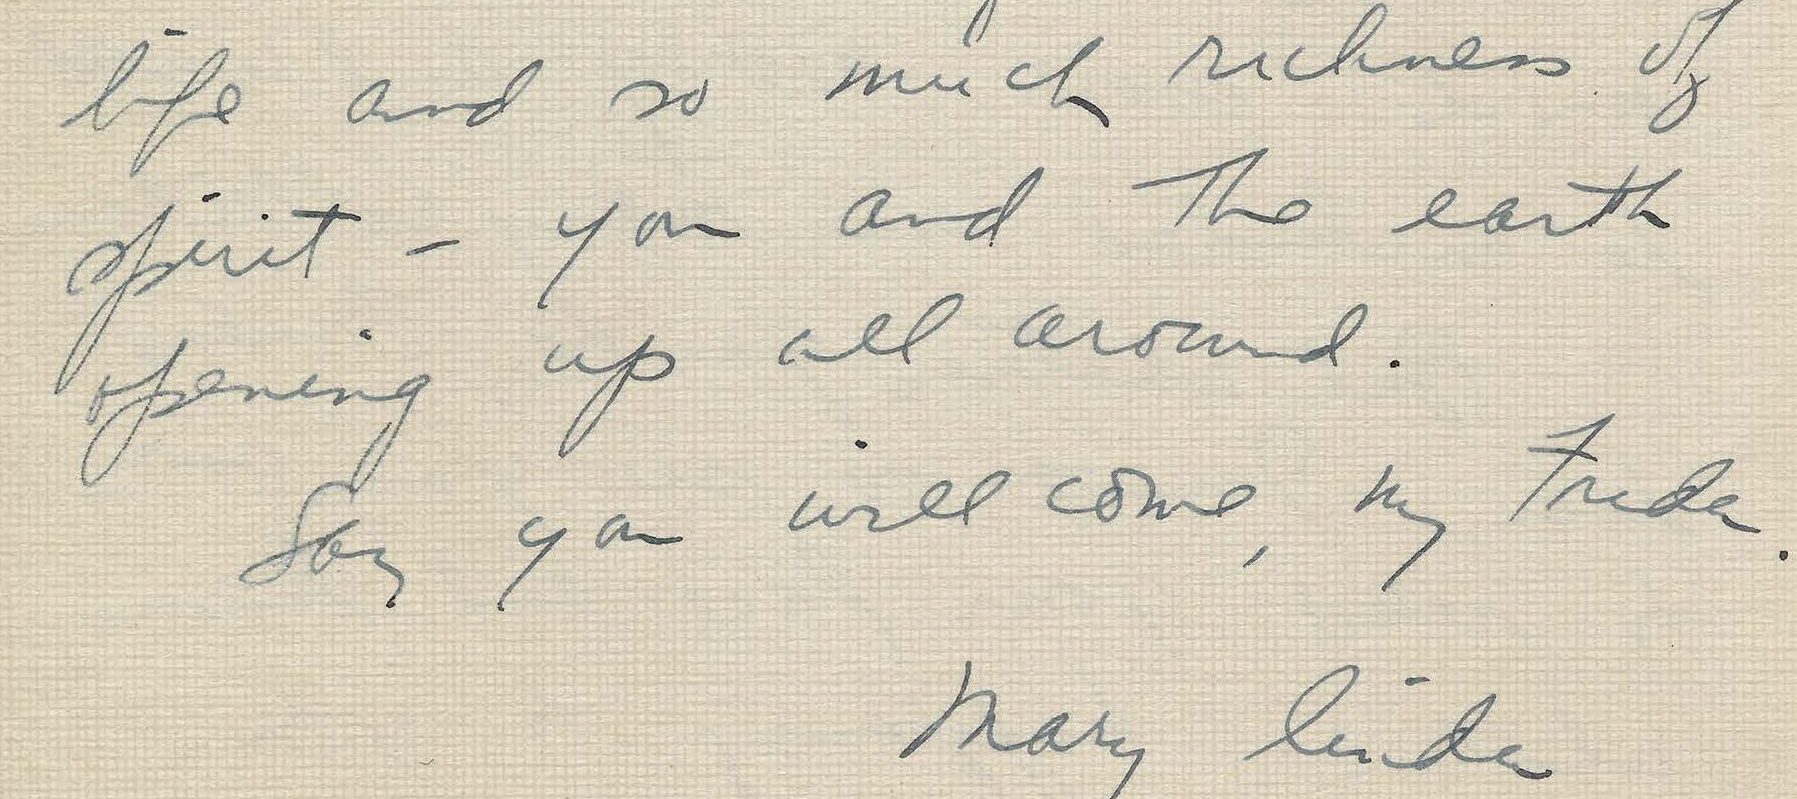 life and so much richness of
spirit - you and the earth
opening up all around.
Say you will come, my Freda.
Mary Linda